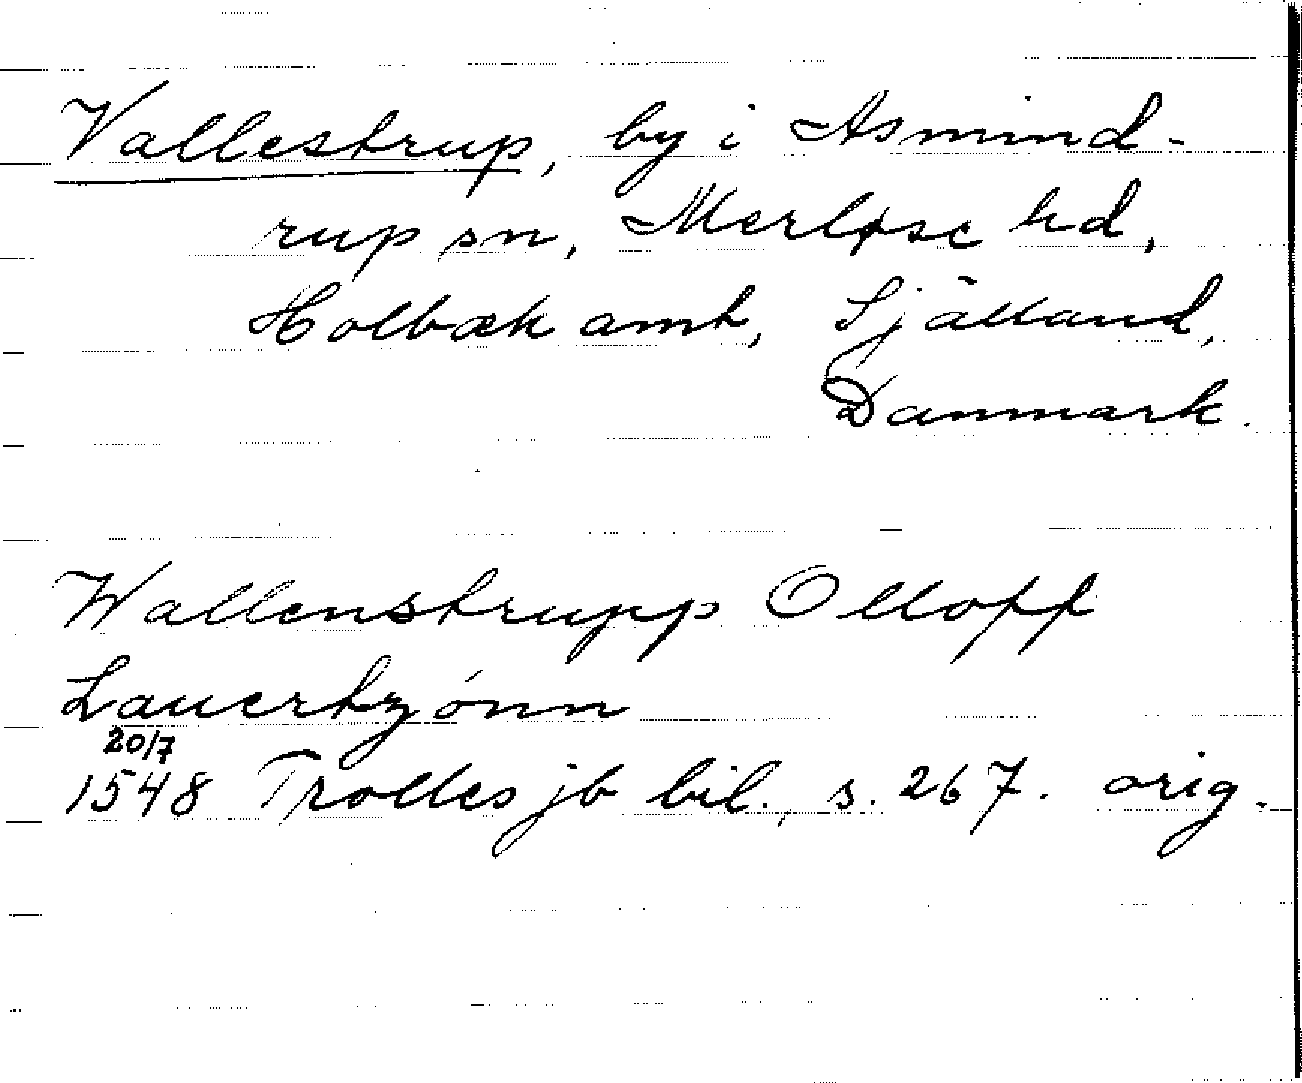 Vallestrup, by i Asmind-
rup sn, Merløse hd,
Holbæk amt, Själland,
Danmark.
Wallenstrupp Olloff
Lauertzónn
20/7
1548 Trolles jb bil., s. 267. orig.